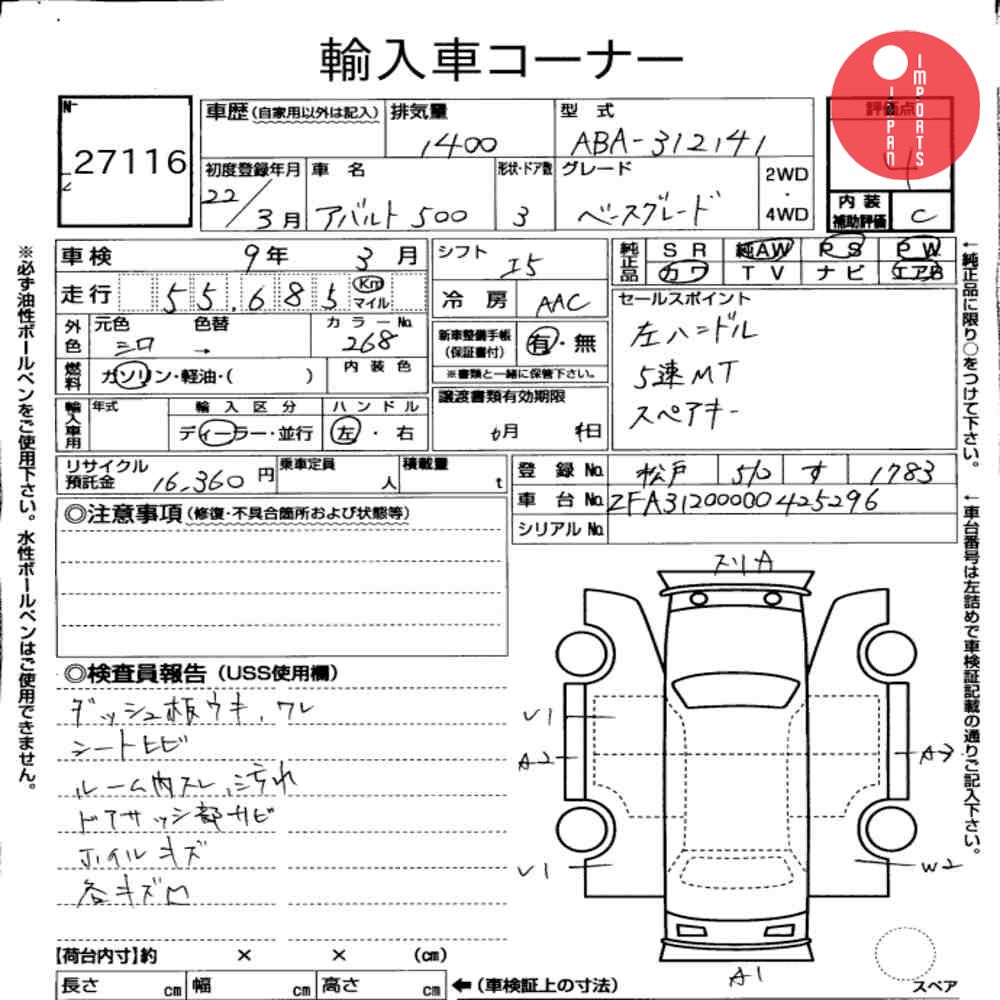 輸入車コーナー
JAPAN IMPORTS
No 27116
車歴(自家用以外は記入) 排気量 1400 型式 ABA-312141 評価点 4
初度登録年月 22/3月 車名 アバルト500 形状・ドア数 3 グレード ベースグレード 2WD・4WD 内装補助評価 C
車検 9年 3月 シフト I5 純正品 SR 純AW PS PW
カワ TV ナビ エアB
走行 55,685 Km マイル 冷房 AAC
外色 元色 シロ 色替 → カラーNo. 268
新車整備手帳(保証書付) 有・無
※書類と一緒に保管下さい。
セールスポイント
左ハンドル
5速MT
スペアキー
燃料 ガソリン・軽油・( ) 内装色
譲渡書類有効期限 月 日
輸入車用 年式 輸入区分 ディーラー・並行 ハンドル 左・右
リサイクル預託金 16,360円 乗車定員 人 積載量 t
登録No. 松戸 510 す 1783
車台No. ZFA31200000425296
シリアルNo.
◎注意事項(修復・不具合箇所および状態等)
◎検査員報告(USS使用欄)
ダッシュ板ウキ、ワレ
シートヒビ
ルーム内スレ、汚れ
ドアサッシ部サビ
ホイルキズ
各キズ凹
スリA
U1
A2
U1
A3
W2
A1
スペア
【荷台内寸】約 × × (cm)
長さ cm 幅 cm 高さ cm ←(車検証上の寸法)
※必ず油性ボールペンをご使用下さい。水性ボールペンはご使用できません。
←純正品に限り○をつけて下さい。
←車台番号は左詰めで車検証記載の通りご記入下さい。